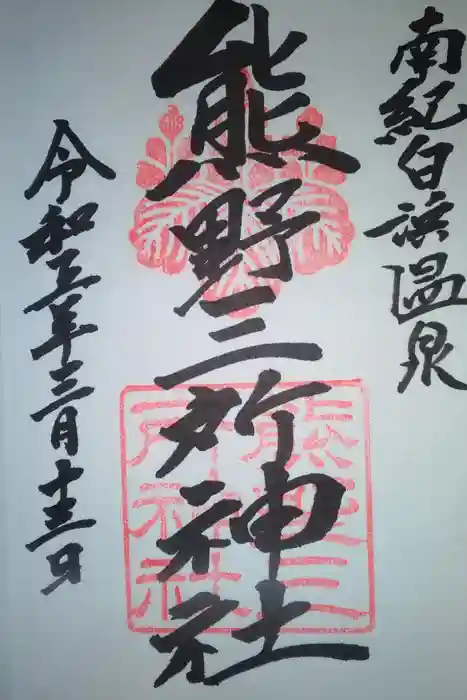 南紀白浜温泉
熊野三所神社
令和三年三月十三日
熊野三
所神社